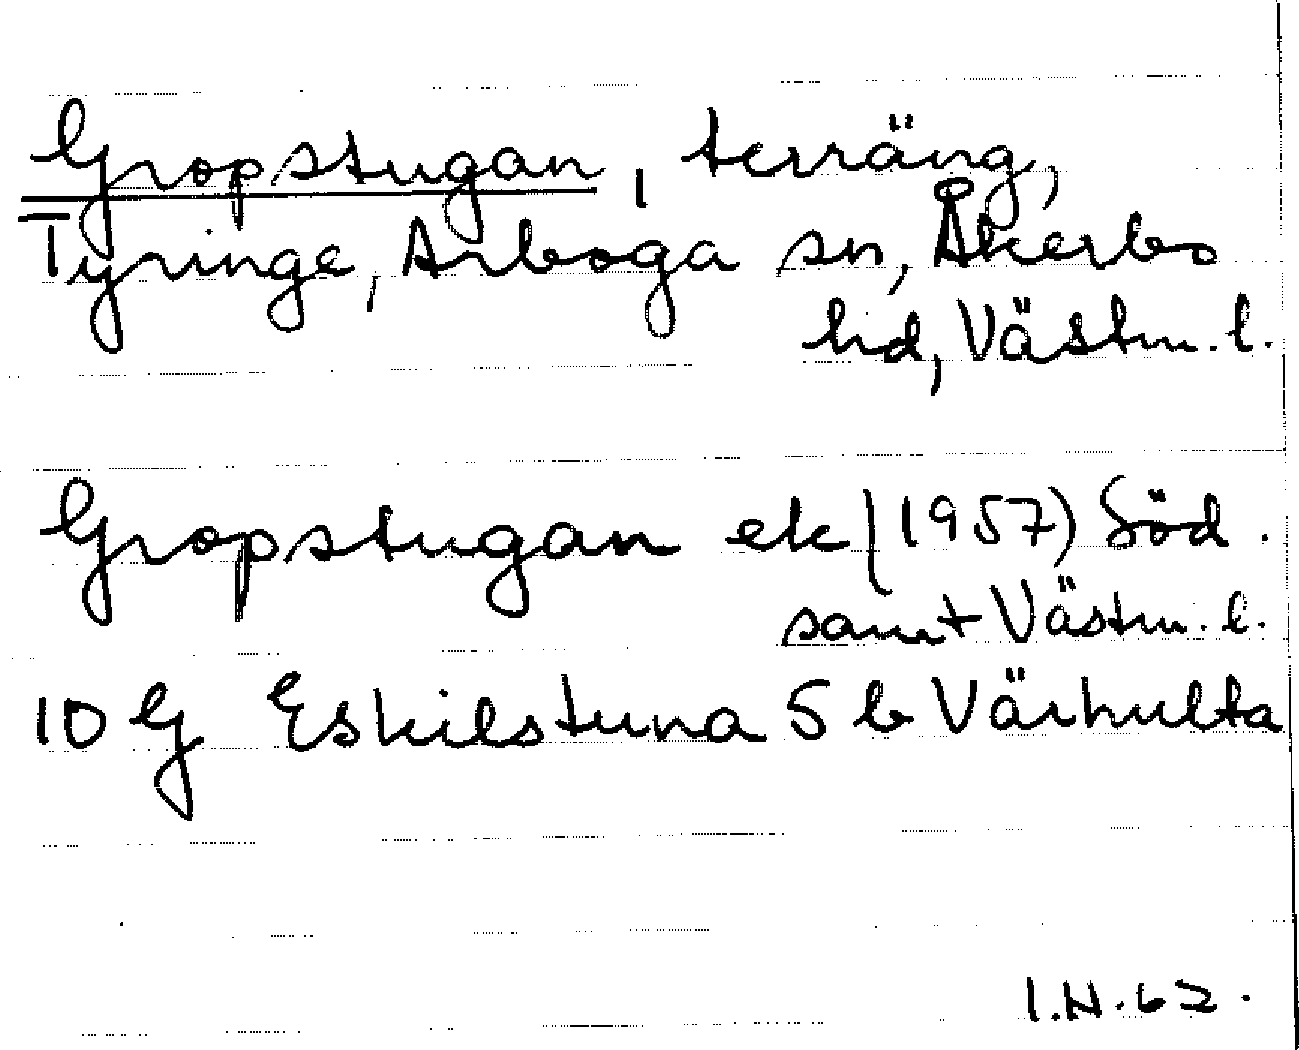 Gropstugan, terräng,
Tyringe, Arboga sn, Åkerbo
hd, Västm. l.
Gropstugan ek (1957) Söd.
samt Västm. l.
10 G Eskilstuna 5 b Värhulta
I.N.62.